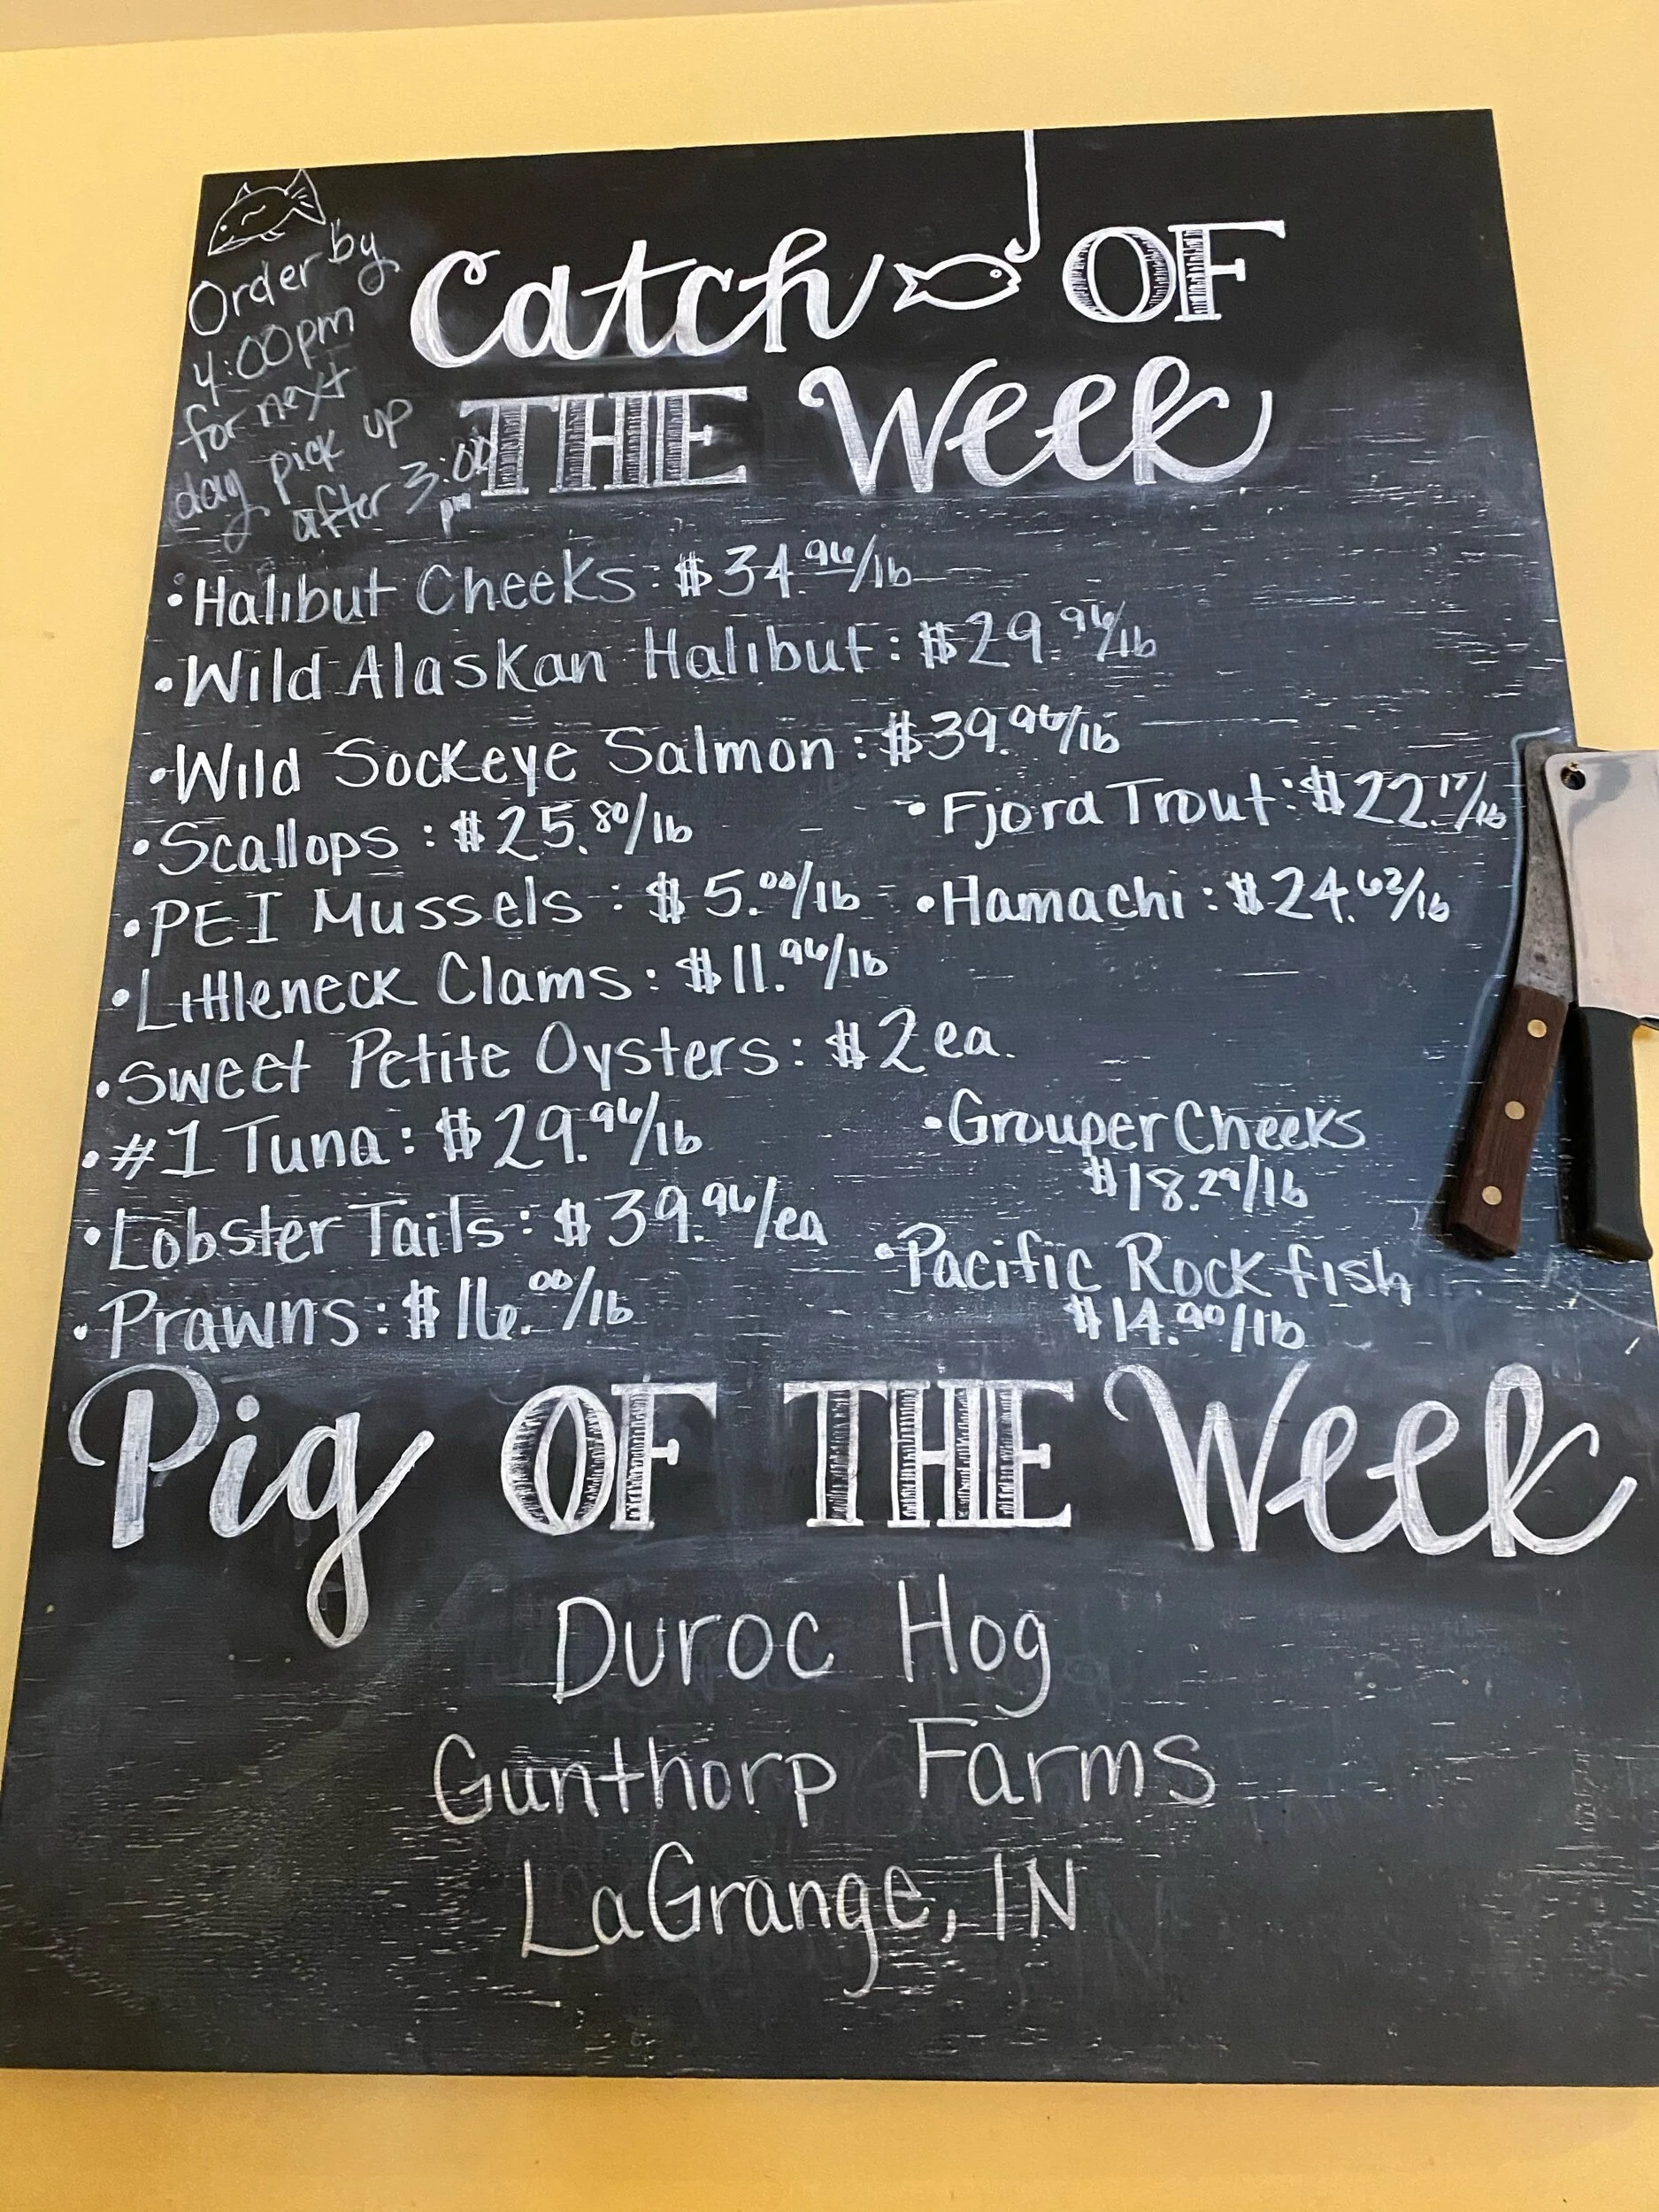 Order by
4:00pm
for next
day pick up
after 3:00
pm
Catch OF
THE Week
•Halibut Cheeks: $34.96/lb
•Wild Alaskan Halibut: $29.96/lb
•Wild Sockeye Salmon: $39.96/lb
•Scallops: $25.80/lb
•Fjord Trout: $22.17/lb
•PEI Mussels: $5.00/lb
•Hamachi: $24.62/lb
•Littleneck Clams: $11.96/lb
•Sweet Petite Oysters: $2 ea.
•#1 Tuna: $29.96/lb
•Grouper Cheeks
$18.29/lb
•Lobster Tails: $39.96/ea
•Pacific Rock fish
$14.90/lb
•Prawns: $16.00/lb
Pig OF THE Week
Duroc Hog
Gunthorp Farms
LaGrange, IN